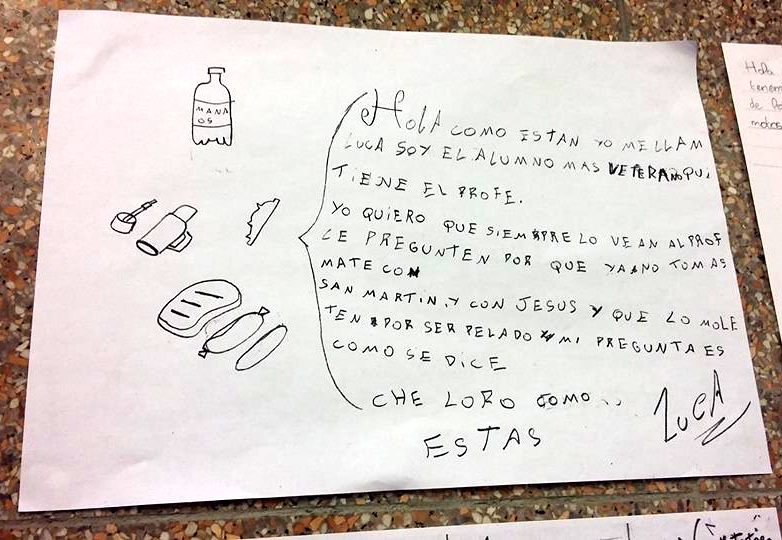 MANA
OS
HOLA COMO ESTAN YO ME LLAM
LUCA SOY EL ALUMNO MAS VETERANO QUE
TIENE EL PROFE.
YO QUIERO QUE SIEMPRE LO VEAN AL PROF
LE PREGUNTEN POR QUE YA NO TOMAS
MATE CON
SAN MARTIN, Y CON JESUS Y QUE LO MOLE
TEN POR SER PELADO Y MI PREGUNTA ES
COMO SE DICE
CHE LORO COMO..
ESTAS
LUCA
Hola
tenem
de